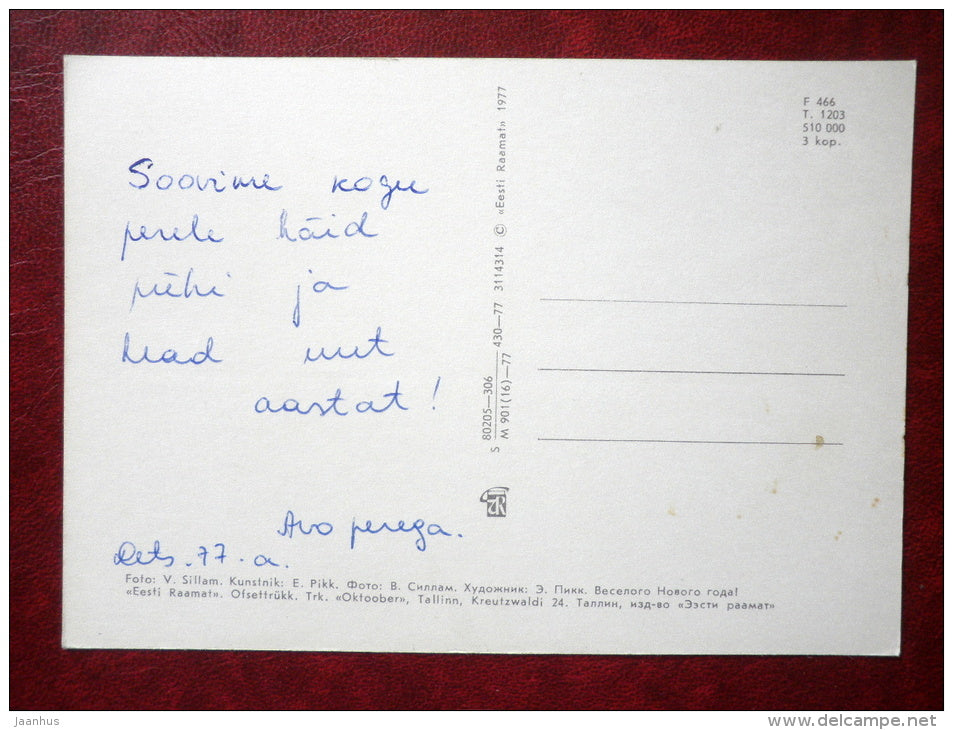 Soovime kogu
perele häid
pühi ja
head uut
aastat!
Avo perega.
Dets. 77. a.
Foto: V. Sillam. Kunstnik: E. Pikk. Фото: В. Силлам. Художник: Э. Пикк. Веселого Нового года!
«Eesti Raamat». Ofsettrükk. Trk. «Oktoober», Tallinn, Kreutzwaldi 24. Таллин, изд-во «Ээсти раамат»
S 80205—306 430—77 3114314 © «Eesti Raamat» 1977
M 901(16)—77
F 466
T. 1203
510 000
3 kop.
jaanhus
www.delcampe.net